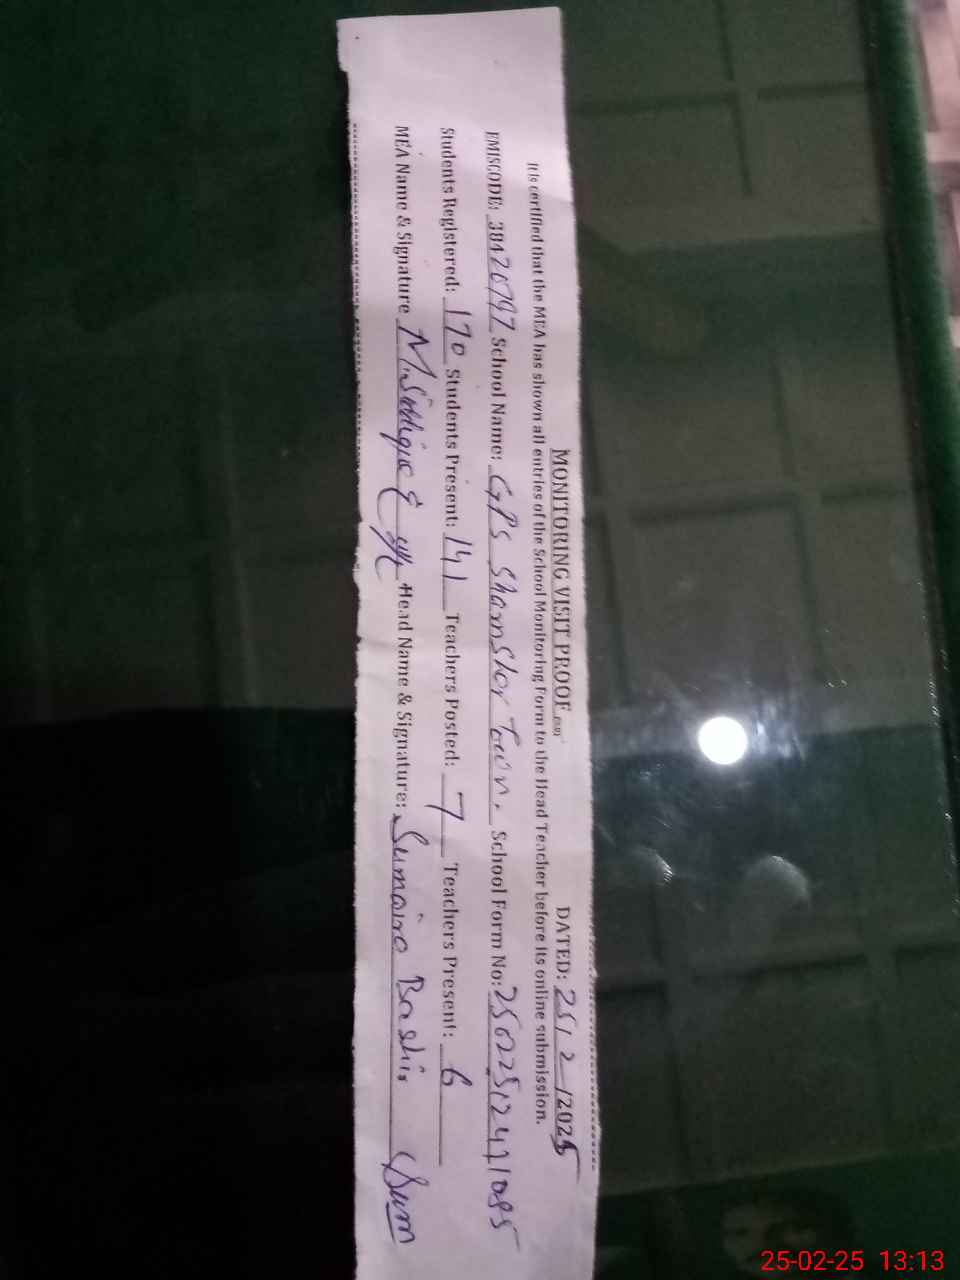 MONITORING VISIT PROOF DATED: 25/2/2025
It is certified that the MEA has shown all entries of the School Monitoring Form to the Head Teacher before its online submission.
EMISCODE: 38420797 School Name: GPS Shamsher Town. School Form No:
Students Registered: 170 Students Present: 141 Teachers Posted: 7 Teachers Present: 6
MEA Name & Signature Head Name & Signature: Sumaira Bashir Sum
25-02-25 13:13